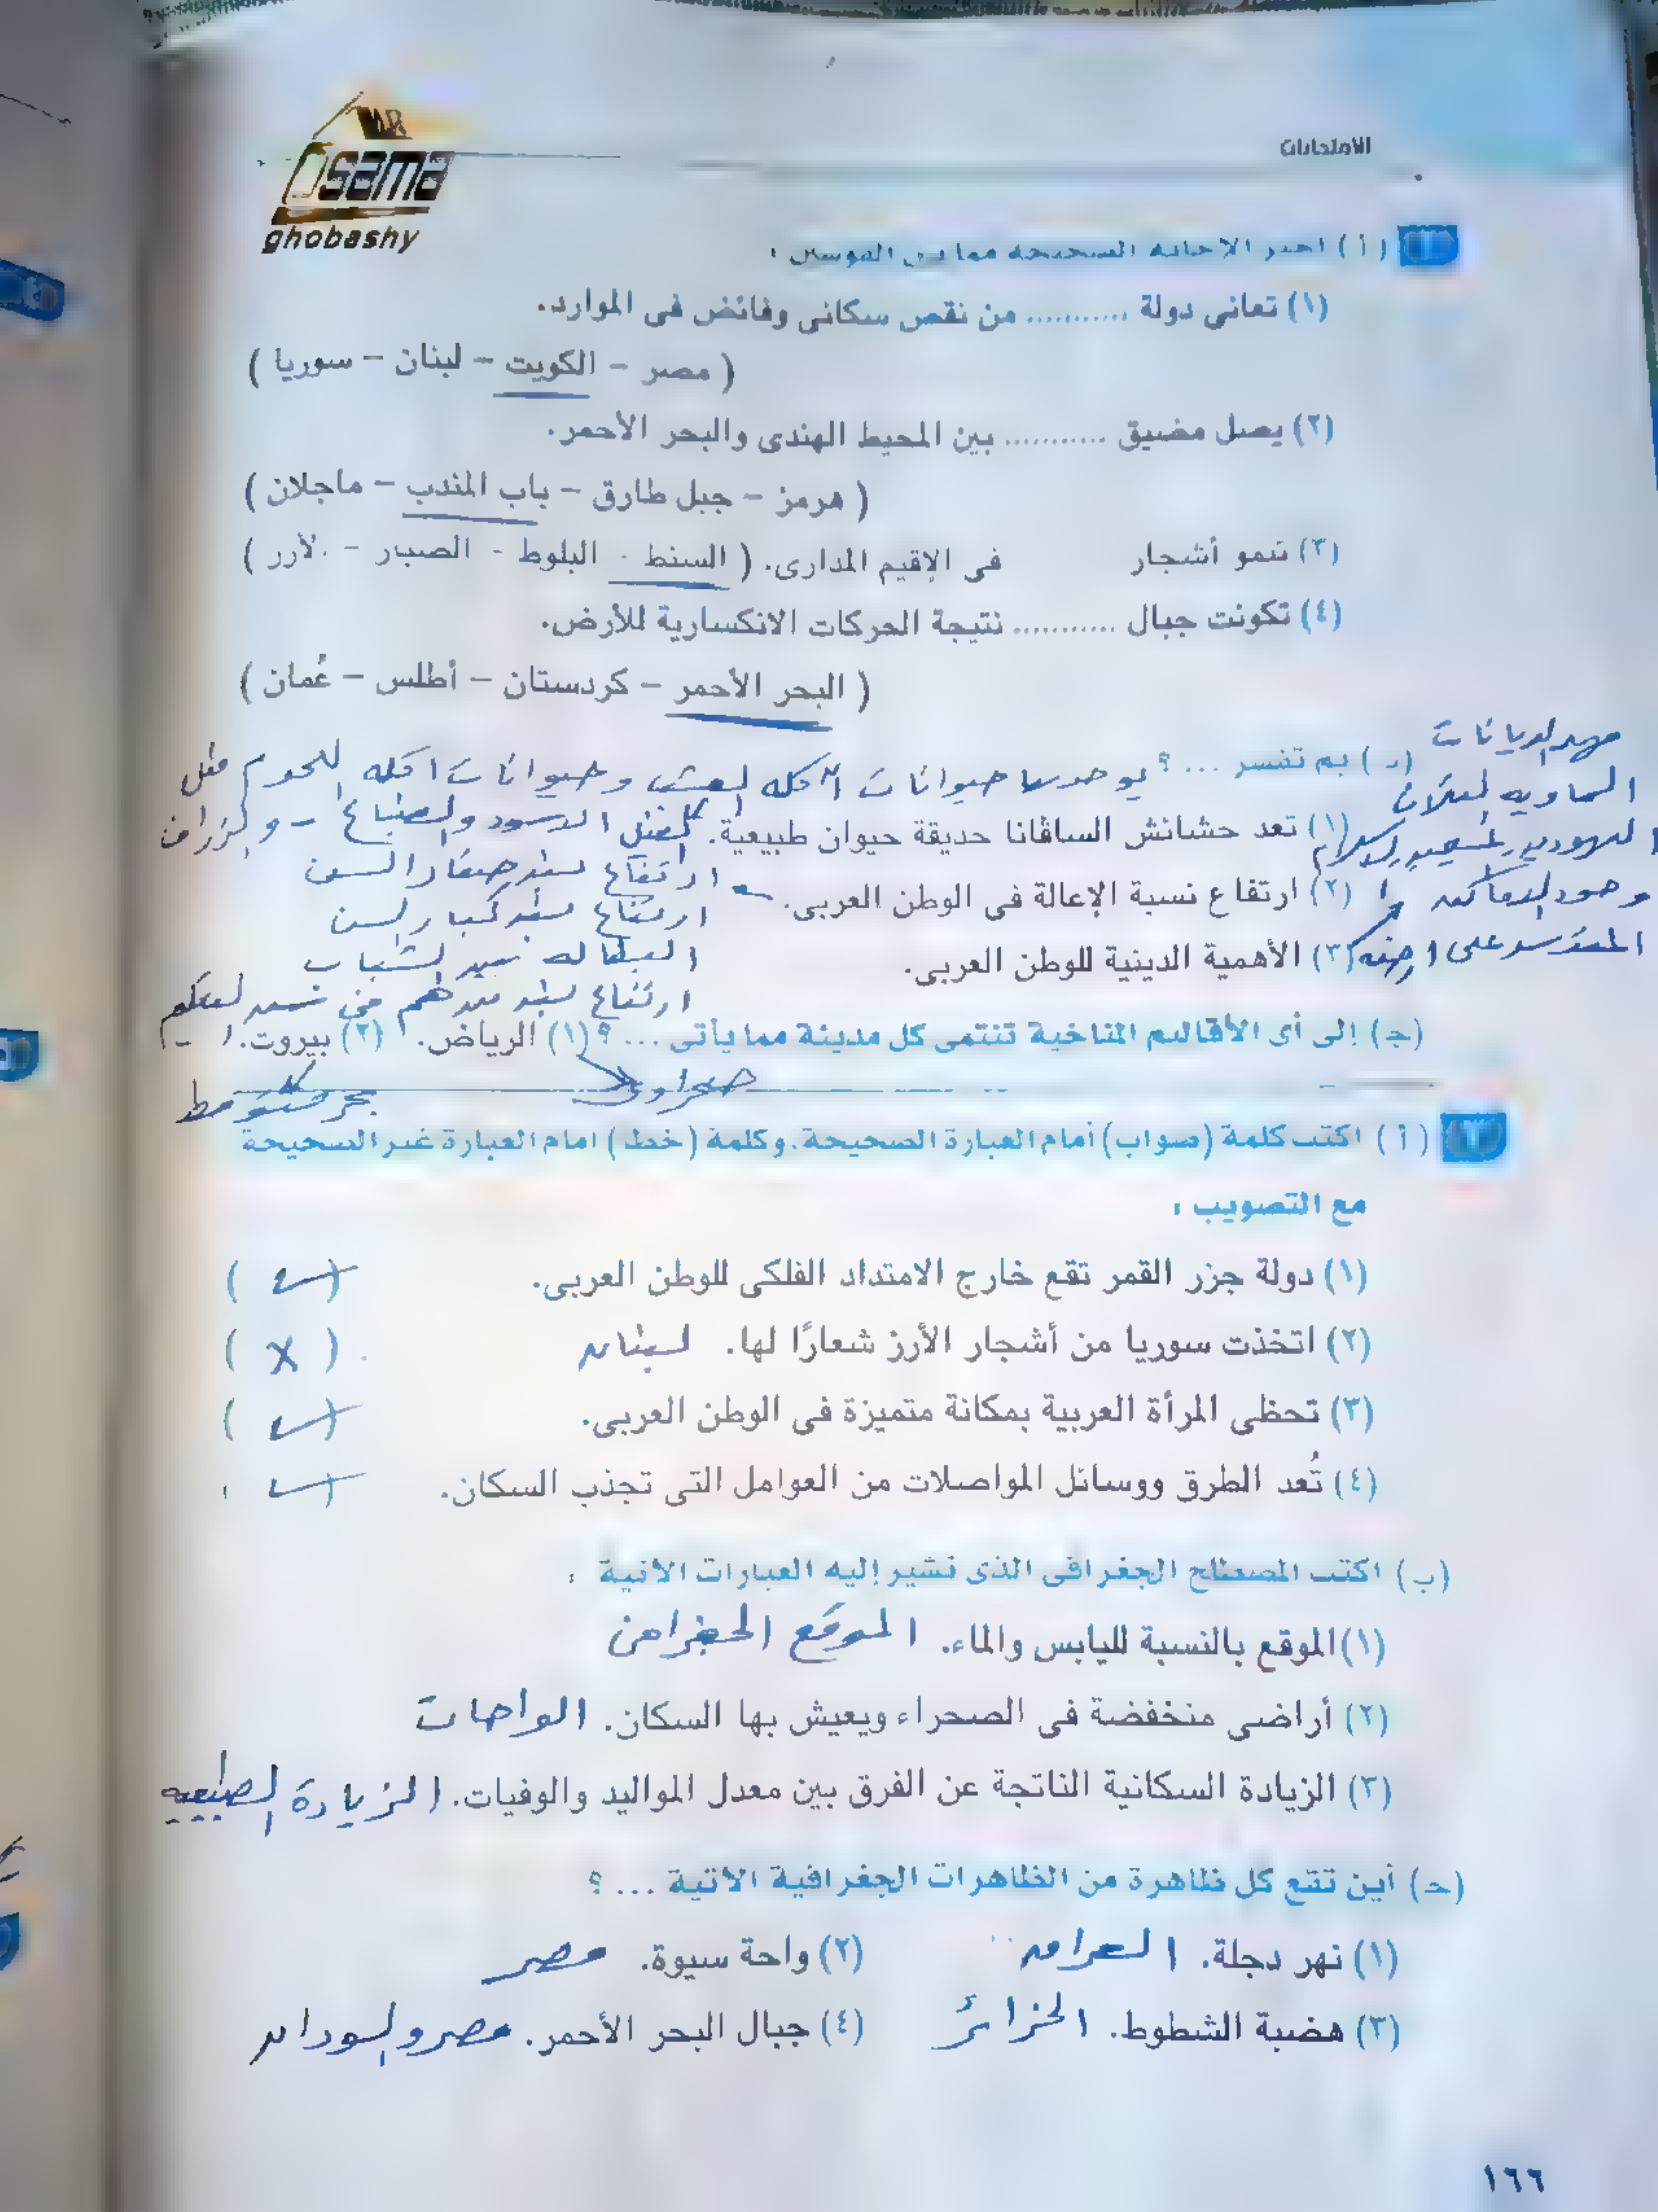 الامتحانات
MR
Osama
ghobashy
١ (أ) اختر الإجابة الصحيحة مما بين القوسين :
(١) تعانى دولة ........... من نقص سكانى وفائض فى الموارد.
( مصر – الكويت – لبنان – سوريا )
(٢) يصل مضيق ........... بين المحيط الهندى والبحر الأحمر.
( هرمز – جبل طارق – باب المندب – ماجلان )
(٣) تنمو أشجار فى الإقيم المدارى. ( السنط - البلوط - الصبار - الأرز )
(٤) تكونت جبال ........... نتيجة الحركات الانكسارية للأرض.
( البحر الأحمر – كردستان – أطلس – عُمان )
(ب) بم تفسر ... ؟ يوجد بها حيوانات آكله العشب وحيوانات اكله اللحوم مثل
(١) تعد حشائش السافانا حديقة حيوان طبيعية. كالفيل الاسود والضباع - والزراف
(٢) ارتفاع نسبة الإعالة فى الوطن العربى. ارتفاع نسبه صغار السن
ارتفاع نسبه كبار السن
(٣) الأهمية الدينية للوطن العربى. البطاله بين الشباب
ارتفاع نسبه
مهد الديانات
السماويه الثلاث
اليهوديه والمسيحيه والاسلام
وجود الاماكن
المقدسه على ارضه
(جـ) إلى أى الأقاليم المناخية تنتمى كل مدينة مما يأتى ... ؟ (١) الرياض. (٢) بيروت.
صحراوى
بحر متوسط
٢ (أ) اكتب كلمة (صواب) أمام العبارة الصحيحة. وكلمة (خطأ) امام العبارة غير الصحيحة
مع التصويب :
(١) دولة جزر القمر تقع خارج الامتداد الفلكى للوطن العربى. ( ✓ )
(٢) اتخذت سوريا من أشجار الأرز شعارًا لها. لبنان ( X )
(٣) تحظى المرأة العربية بمكانة متميزة فى الوطن العربى. ( ✓ )
(٤) تُعد الطرق ووسائل المواصلات من العوامل التى تجذب السكان. ( ✓ )
(ب) اكتب المصطلح الجغرافى الذى تشير إليه العبارات الآتية :
(١) الموقع بالنسبة لليابس والماء. الموقع الجغرافى
(٢) أراضى منخفضة فى الصحراء ويعيش بها السكان. الواحات
(٣) الزيادة السكانية الناتجة عن الفرق بين معدل المواليد والوفيات. الزيادة الطبيعيه
(جـ) أين تقع كل ظاهرة من الظاهرات الجغرافية الآتية ... ؟
(١) نهر دجلة. العراق (٢) واحة سيوة. مصر
(٣) هضبة الشطوط. الجزائر (٤) جبال البحر الأحمر. مصر والسودان
١٦٦